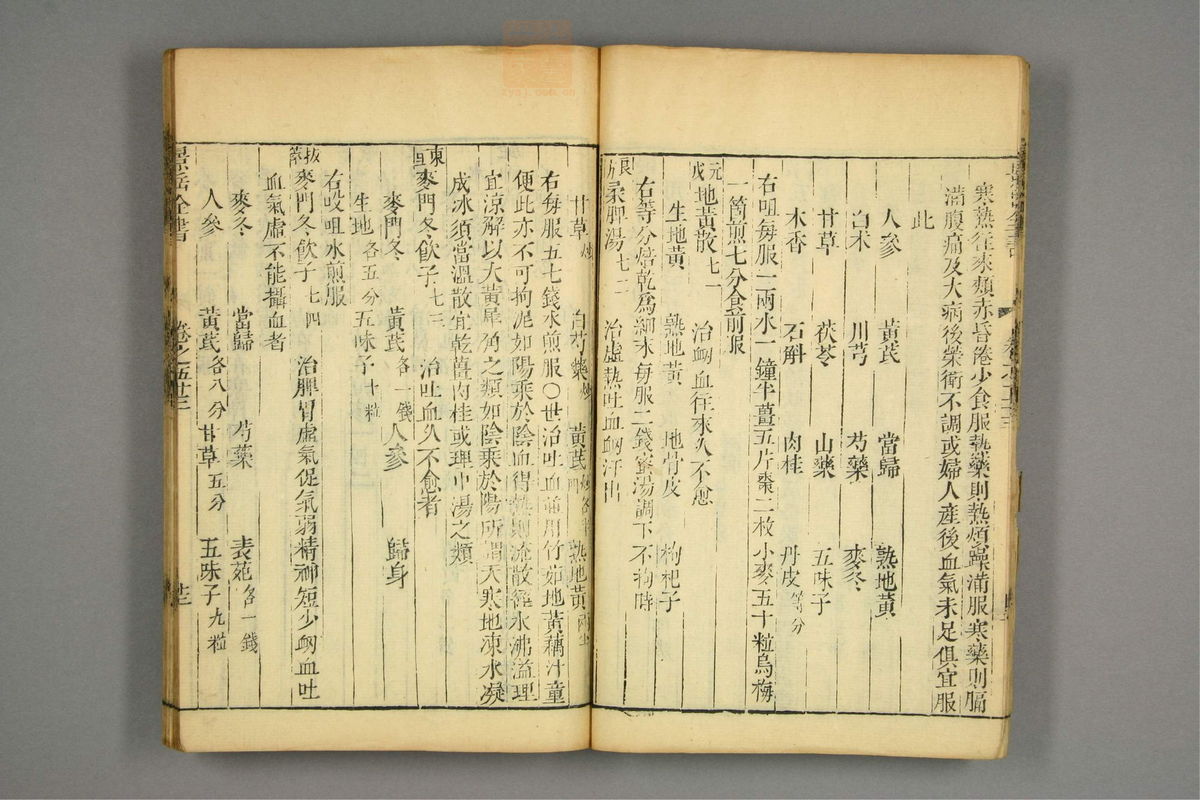 寒熱往來頰赤昏倦少食服熱藥則熱煩躁滿服寒藥則膈
滿腹痛及大病後榮衛不調或婦人產後血氣未足俱宜服
此
人參 黃芪 當歸 熟地黃
白朮 川芎 芍藥 麥冬
甘草 茯苓 山藥 五味子
木香 石斛 肉桂 丹皮等分
右咀每服一兩水一鐘半薑五片棗二枚小麥五十粒烏梅
一箇煎七分食前服
元戎地黃散七一 治衂血往來久不愈
生地黃 熟地黃 地骨皮 枸杞子
右等分焙乾爲細末每服二錢蜜湯調下不拘時
良方柔脾湯七二 治虛熱吐血衂汗出
甘草炒 白芍藥炒 黃芪 熟地黃
右每服五七錢水煎服○世治吐血並用竹茹地黃藕汁童
便此亦不可拘泥如陽乘於陰血得熱則流散經水沸溢理
宜涼解以大黃犀角之類如陰乘於陽所謂天寒地凍水凝
成冰須當溫散宜乾薑肉桂或理中湯之類
東垣麥門冬飲子七三 治吐血久不愈者
麥門冬 黃芪各一錢 人參 歸身
生地各五分 五味子十粒
右㕮咀水煎服
拔萃麥門冬飲子七四 治脾胃虛氣促氣弱精神短少衂血吐
血氣虛不能攝血者
麥冬 當歸 芍藥 紫菀各一錢
人參 黃芪各八分 甘草五分 五味子九粒
景岳全書 卷之五十三